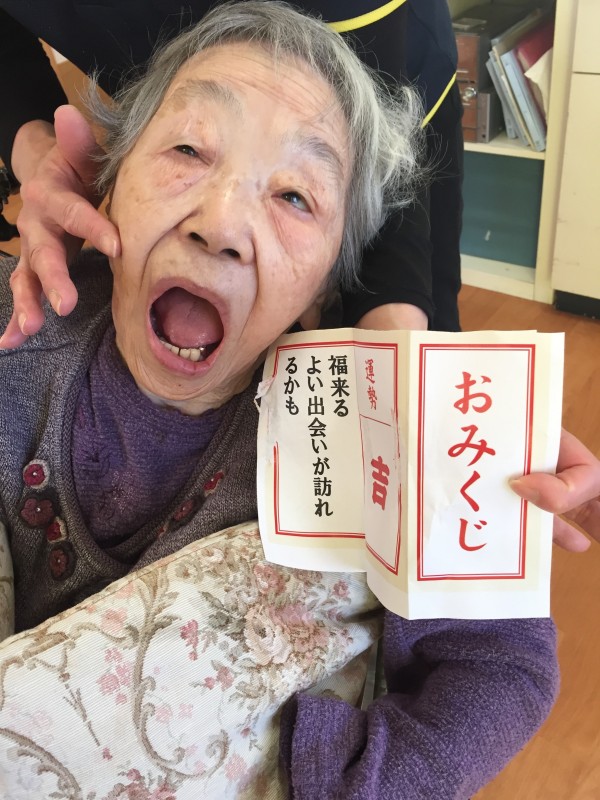 おみくじ
運勢
吉
福来る
よい出会いが訪れ
るかも